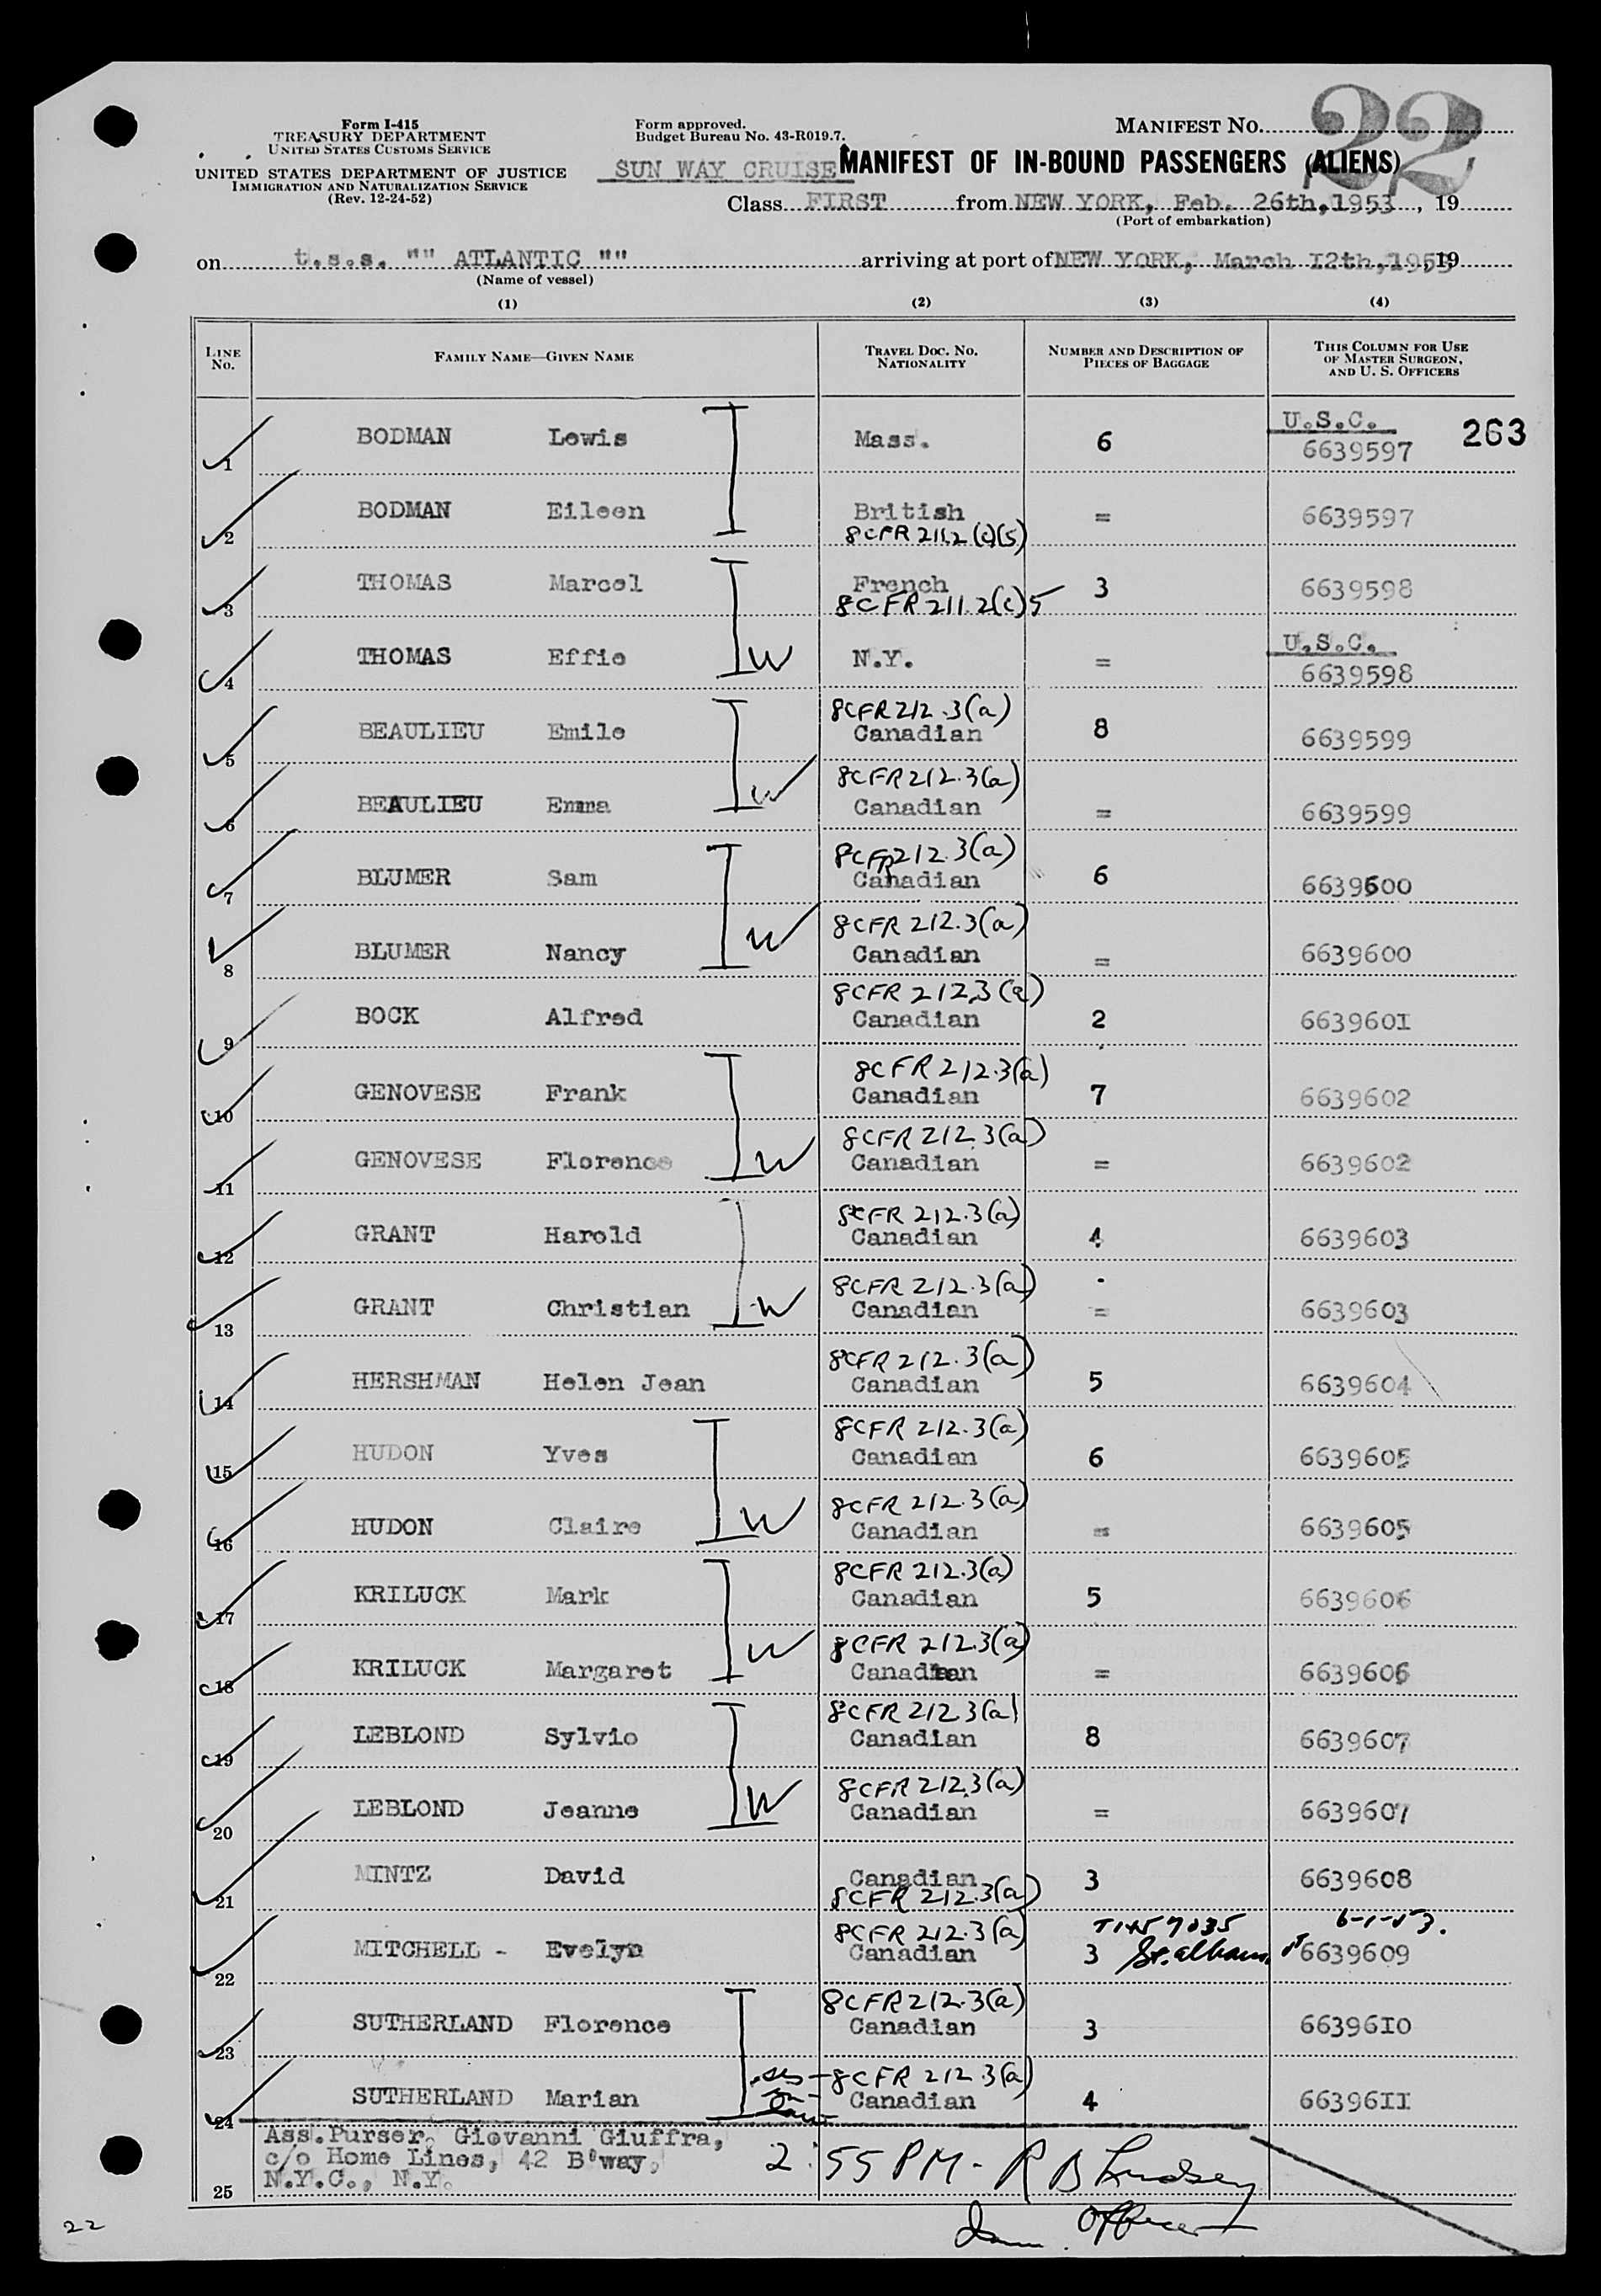 Form I-415
TREASURY DEPARTMENT
UNITED STATES CUSTOMS SERVICE
UNITED STATES DEPARTMENT OF JUSTICE
IMMIGRATION AND NATURALIZATION SERVICE
(Rev. 12-24-52)
Form approved.
Budget Bureau No. 43-R019.7.
MANIFEST NO. 22
SUN WAY CRUISE MANIFEST OF IN-BOUND PASSENGERS (ALIENS)
Class FIRST from NEW YORK, Feb. 26th, 1953, 19
(Port of embarkation)
on t.s.s. "" ATLANTIC "" arriving at port of NEW YORK, March I2th, 1953, 19
(Name of vessel)
(1) (2) (3) (4)
LINE No. FAMILY NAME—GIVEN NAME TRAVEL DOC. NO. NATIONALITY NUMBER AND DESCRIPTION OF PIECES OF BAGGAGE THIS COLUMN FOR USE OF MASTER SURGEON, AND U. S. OFFICERS
1 BODMAN Lewis Mass. 6 U.S.C. 6639597 263
2 BODMAN Eileen British 8CFR 211.2(c)(5) = 6639597
3 THOMAS Marcel French 8CFR 211.2(c)5 3 6639598
4 THOMAS Effie W N.Y. = U.S.C. 6639598
5 BEAULIEU Emile 8CFR 212.3(a) Canadian 8 6639599
6 BEAULIEU Emma W 8CFR 212.3(a) Canadian = 6639599
7 BLUMER Sam 8CFR 212.3(a) Canadian 6 6639600
8 BLUMER Nancy W 8CFR 212.3(a) Canadian = 6639600
9 BOCK Alfred 8CFR 212.3(a) Canadian 2 663960I
10 GENOVESE Frank 8CFR 212.3(a) Canadian 7 6639602
11 GENOVESE Florence W 8CFR 212.3(a) Canadian = 6639602
12 GRANT Harold 8CFR 212.3(a) Canadian 4 6639603
13 GRANT Christian W 8CFR 212.3(a) Canadian = 6639603
14 HERSHMAN Helen Jean 8CFR 212.3(a) Canadian 5 6639604
15 HUDON Yves 8CFR 212.3(a) Canadian 6 6639605
16 HUDON Claire W 8CFR 212.3(a) Canadian = 6639605
17 KRILUCK Mark 8CFR 212.3(a) Canadian 5 6639606
18 KRILUCK Margaret W 8CFR 212.3(a) Canadian = 6639606
19 LEBLOND Sylvio 8CFR 212 3(a) Canadian 8 6639607
20 LEBLOND Jeanne W 8CFR 212.3(a) Canadian = 6639607
21 MINTZ David Canadian 8CFR 212.3(a) 3 6639608
22 MITCHELL - Evelyn 8CFR 212.3(a) Canadian 3 St. albans Vt 6639609
23 SUTHERLAND Florence 8CFR 212.3(a) Canadian 3 66396I0
24 SUTHERLAND Marian 8CFR 212.3(a) Canadian 4 66396II
Ass.Purser. Giovanni Giuffra,
c/o Home Lines, 42 B'way,
N.Y.C., N.Y.
25 2:55 PM - R B Lindsey
Imm. Officer
22